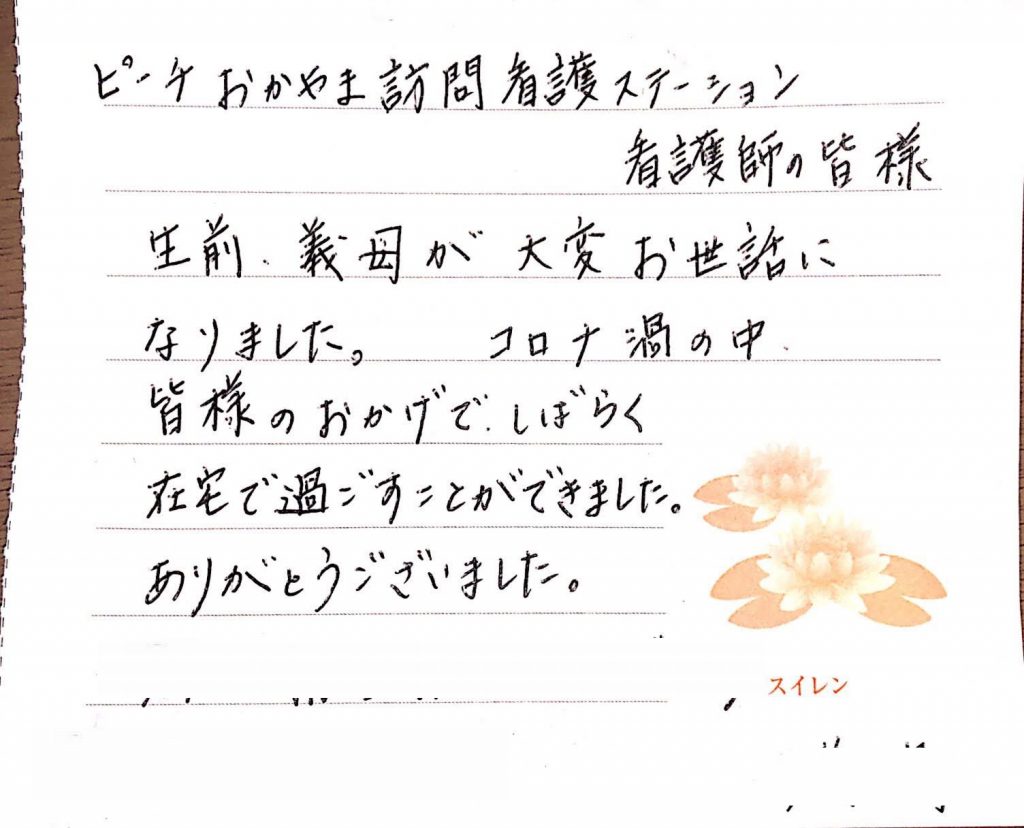 ピーチおかやま訪問看護ステーション
看護師の皆様
生前、義母が大変お世話に
なりました。 コロナ渦の中、
皆様のおかげで、しばらく
在宅で過ごすことができました。
ありがとうございました。
スイレン